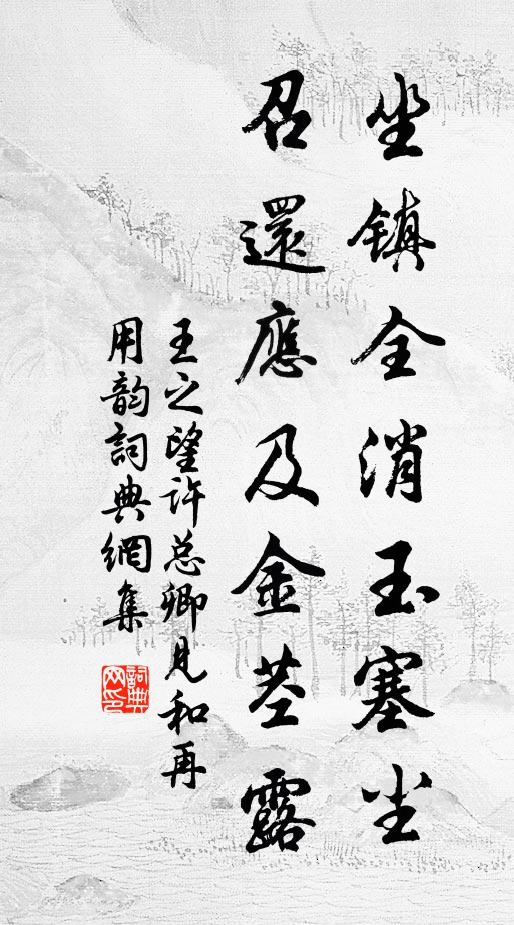 坐镇全消玉塞尘
召還應及金茎露
王之望许总卿見和再
用韵詞典網集
詞典
网印